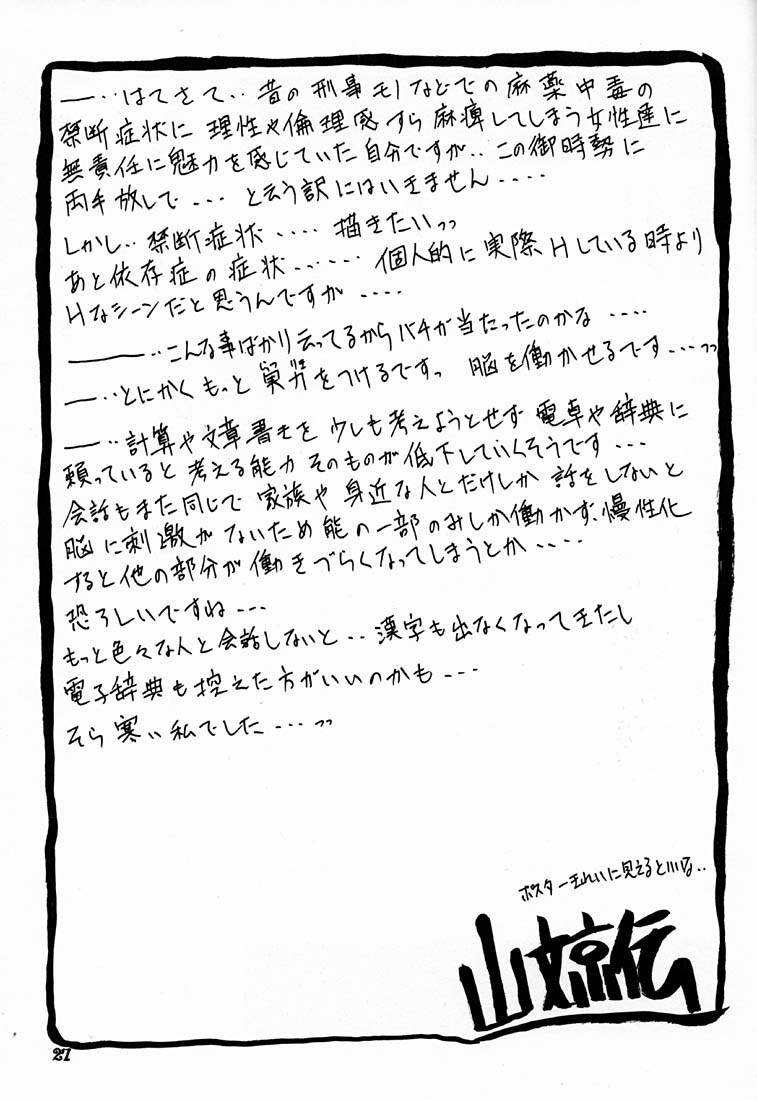 ――‥はてさて‥昔の刑事モノなどでの麻薬中毒の
禁断症状に理性や倫理感すら麻痺してしまう女性達に
無責任に魅力を感じていた自分ですが‥この御時勢に
両手放しで‥‥と云う訳にはいきません‥‥
しかし‥禁断症状‥‥描きたいっっ
あと依存症の症状‥‥‥個人的に実際Hしている時より
Hなシーンだと思うんですが‥‥
――‥こんな事ばかり云ってるからバチが当たったのかな‥‥
――‥とにかくもっと をつけるですっ 脳を働かせるです‥‥っっ
――‥計算や文章書きを少しも考えようとせず電卓や辞典に
頼っていると考える能力そのものが低下していくそうです‥‥
会話もまた同じで家族や身近な人とだけしか話をしないと
脳に刺激がないため能の一部のみしか働かず、慢性化
すると他の部分が働きづらくなってしまうとか‥‥
恐ろしいですね‥‥
もっと色々な人と会話しないと‥漢字も出なくなってきたし
電子辞典も控えた方がいいのかも‥‥
そら寒い私でした‥‥っっ
ポスターきれいに見えるといいな‥
山文京伝
27